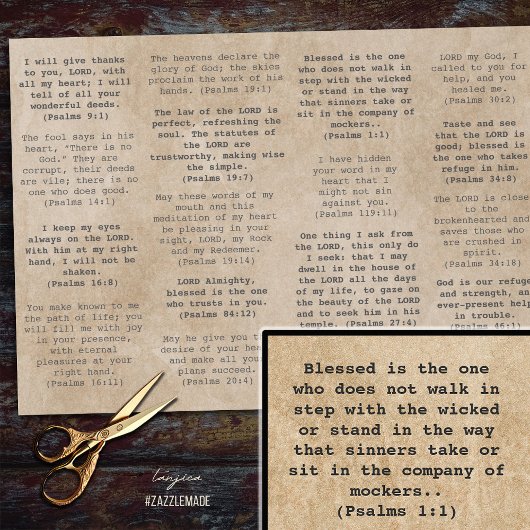 I will give thanks
to you, LORD, with
all my heart; I will
tell of all your
wonderful deeds.
(Psalms 9:1)
The fool says in his
heart, "There is no
God." They are
corrupt, their deeds
are vile; there is no
one who does good.
(Psalms 14:1)
I keep my eyes
always on the LORD.
With him at my right
hand, I will not be
shaken.
(Psalms 16:8)
You make known to me
the path of life; you
will fill me with joy
in your presence,
with eternal
pleasures at your
right hand.
(Psalms 16:11)
The heavens declare the
glory of God; the skies
proclaim the work of his
hands. (Psalms 19:1)
The law of the LORD is
perfect, refreshing the
soul. The statutes of
the LORD are
trustworthy, making wise
the simple.
(Psalms 19:7)
May these words of my
mouth and this
meditation of my heart
be pleasing in your
sight, LORD, my Rock
and my Redeemer.
(Psalms 19:14)
LORD Almighty,
blessed is the one
who trusts in you.
(Psalms 84:12)
May he give you the
desire of your heart
and make all your
plans succeed.
(Psalms 20:4)
Blessed is the one
who does not walk in
step with the wicked
or stand in the way
that sinners take or
sit in the company of
mockers..
(Psalms 1:1)
I have hidden
your word in my
heart that I
might not sin
against you.
(Psalms 119:11)
One thing I ask from
the LORD, this only do
I seek: that I may
dwell in the house of
the LORD all the days
of my life, to gaze on
the beauty of the LORD
and to seek him in his
temple. (Psalms 27:4)
LORD my God, I
called to you for
help, and you
healed me.
(Psalms 30:2)
Taste and see
that the LORD is
good; blessed is
the one who takes
refuge in him.
(Psalms 34:8)
The LORD is close
to the
brokenhearted and
saves those who
are crushed in
spirit.
(Psalms 34:18)
God is our refuge
and strength, an
ever-present help
in trouble.
(Psalms 46:1)
Blessed is the one
who does not walk in
step with the wicked
or stand in the way
that sinners take or
sit in the company of
mockers..
(Psalms 1:1)
lanjica
#ZAZZLEMADE